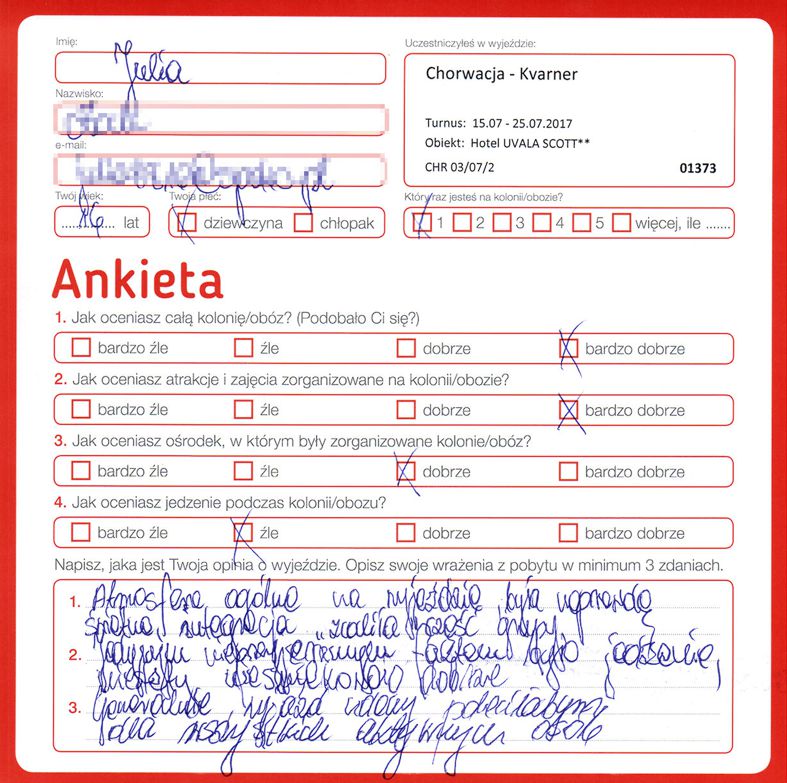 Imię:
Julia
Uczestniczyłeś w wyjeździe:
Chorwacja - Kvarner
Turnus: 15.07 - 25.07.2017
Obiekt: Hotel UVALA SCOTT**
CHR 03/07/2 01373
Nazwisko:
e-mail:
Twój wiek:
16 lat
Twoja płeć:
dziewczyna chłopak
Który raz jesteś na kolonii/obozie?
1 2 3 4 5 więcej, ile .......
Ankieta
1. Jak oceniasz całą kolonię/obóz? (Podobało Ci się?)
bardzo źle źle dobrze bardzo dobrze
2. Jak oceniasz atrakcje i zajęcia zorganizowane na kolonii/obozie?
bardzo źle źle dobrze bardzo dobrze
3. Jak oceniasz ośrodek, w którym były zorganizowane kolonie/obóz?
bardzo źle źle dobrze bardzo dobrze
4. Jak oceniasz jedzenie podczas kolonii/obozu?
bardzo źle źle dobrze bardzo dobrze
Napisz, jaka jest Twoja opinia o wyjeździe. Opisz swoje wrażenia z pobytu w minimum 3 zdaniach.
1. Atmosfera ogólna na wyjeździe była naprawdę
świetna, integracja grupy
2. Jedynym było jedzenie,
niestety dobre
3. Generalnie wyjazd udany poleciłabym
dla wszystkich aktywnych osób